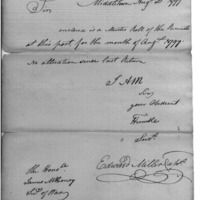 Middletown Aug.t 31 1799
Sir
enclosed is a Muster Roll of the Recruits
at this post for the month of Aug.t 1799
no alteration since last Return
I AM
Sir
your Obedient
Humble
Serv.t
Edward Miller Capt.
The Hon.e
James McHenry
Sec.y of War